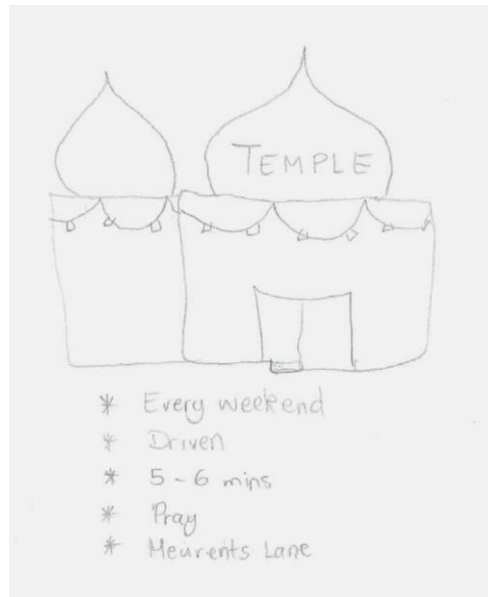 TEMPLE
* Every weekend
* Driven
* 5-6 mins
* Pray
* Meurents Lane